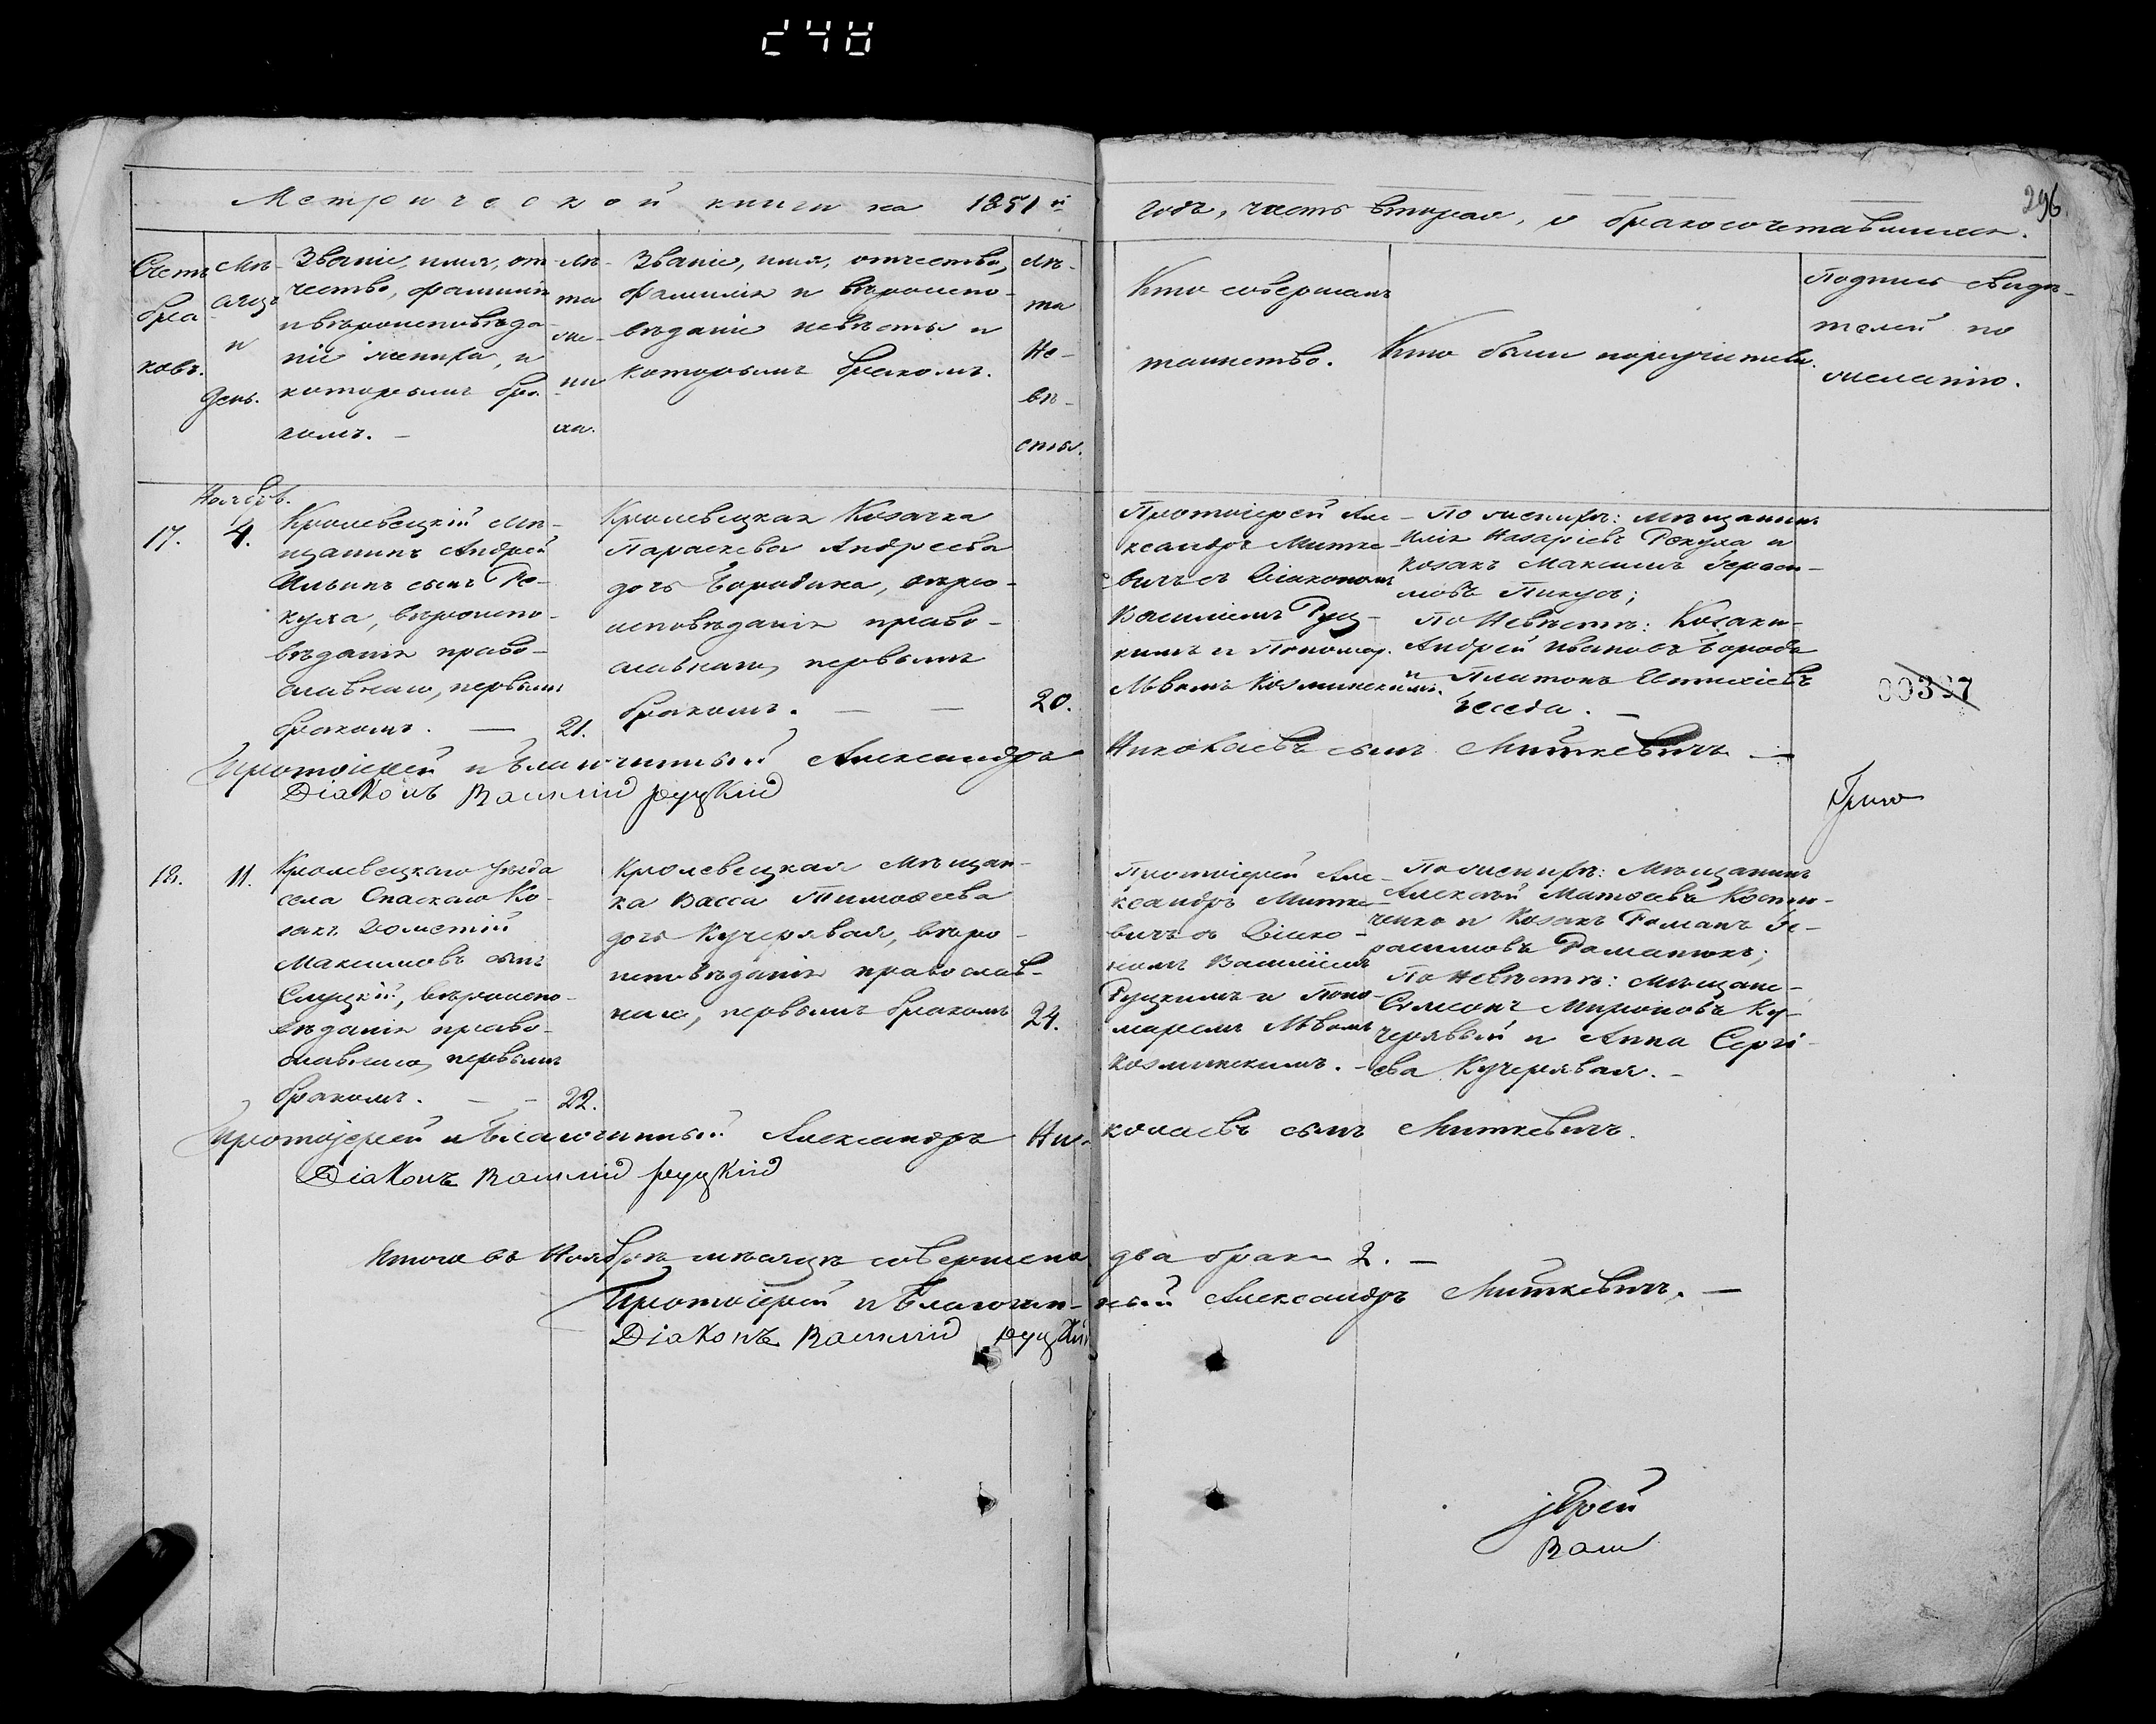 248
Метрической книги на 1851й
годъ, часть вторая, о бракосочетавшихся.
296
Счетъ
бра
ковъ.
Мѣ-
сяцъ
и
день.
Званіе, имя, от-
чество, фамилія
и вѣроисповѣда-
ніе жениха, и
которымъ бра-
комъ. —
Лѣ-
та
же-
ни-
ха.
Званіе, имя, отчество,
фамилія и вѣроиспо-
вѣданіе невѣсты и
которымъ бракомъ.
Лѣ-
та
Не-
вѣ-
сты.
Кто совершалъ
таинство.
Кто были поручители.
Подпись свидѣ-
телей по
желанію.
Ноябрь.
17.
4.
Кролевецкій Мѣ-
щанинъ Андрей
Ильинъ сынъ Ре-
кула, вѣроиспо-
вѣданія право-
славнаго, первымъ
бракомъ. —
21.
Кролевецкая Козачка
Параскева Андреева
дочь Бородина, вѣро-
исповѣданія право-
славнаго, первымъ
бракомъ. — —
20.
Протоіерей Але-
ксандръ Митке-
вичъ съ Діакономъ
Василіемъ Руц-
кимъ и Пономар.
Львомъ Козминскимъ.
По женихѣ: Мѣщанинъ
Илія Назаріевъ Рекула и
козакъ Максимъ Гераси-
мовъ Пикусъ;
По Невѣстѣ: Козаки-
Андрей Ивановъ Борода
и Платонъ Евтихіевъ
Беседа. —
00397
Протоіерей и Благочинный Александръ Николаевъ сынъ Миткевичъ —
Діаконъ Василій Руцкій
18.
11.
Кролевецкаго уѣзда
села Спаскаго Ко-
закъ Дометій
Максимовъ сынъ
Слуцкій, вѣроиспо-
вѣданія право-
славнаго, первымъ
бракомъ. — —
22.
Кролевецкая Мѣщан-
ка Васса Тимоѳеева
дочь Кучерявая, вѣро-
исповѣданія православ-
наго, первымъ бракомъ
24.
Протоіерей Але-
ксандръ Митке-
вичъ съ Діако-
номъ Василіемъ
Руцкимъ и Поно-
маремъ Львомъ
Козминскимъ. —
По женихѣ: Мѣщанинъ
Алексѣй Матѳеевъ Костю-
ченко и Козакъ Романъ Ге-
расимовъ Романюкъ;
По Невѣстѣ: Мѣщане-
Сѵмеонъ Мироновъ Ку-
черявый и Анна Сергі-
ева Кучерявая. —
Протоіерей и Благочинный Александръ Николаевъ сынъ Миткевичъ.
Діаконъ Василій Руцкій
Итого въ Ноябрѣ мѣсяцѣ совершено два брака 2. —
Протоіерей и Благочинный Александръ Миткевичъ. —
Діаконъ Василій Руцкій
іерей
Васи